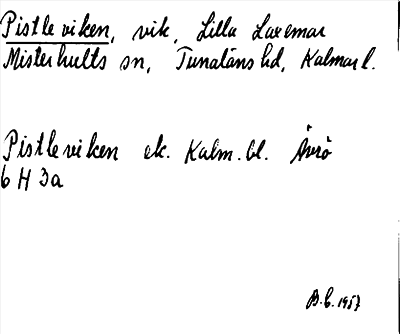 Pistleviken, vik, Lilla Laxemar
Misterhults sn, Tunaläns hd, Kalmar l.
Pistleviken ek. Kalm. bl. Ävrö
6 H 3a
B.E. 1957